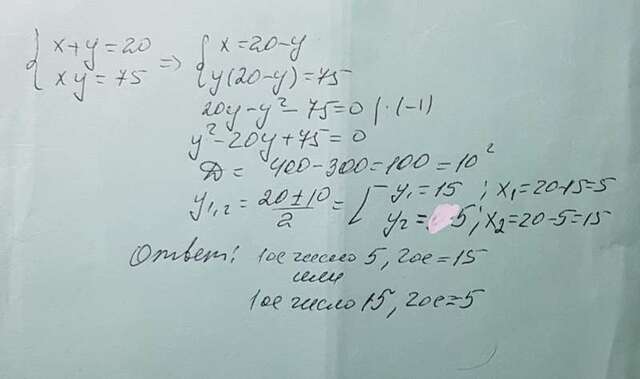 { x+y=20 => { x=20-y
{ xy=75 { y(20-y)=75
20y-y²-75=0 |·(-1)
y²-20y+75=0
D=400-300=100=10²
y₁,₂=20±10/2=[ y₁=15 ; x₁=20-15=5
y₂=5; x₂=20-5=15
Ответ: 1ое число 5, 2ое=15
или
1ое число 15, 2ое=5